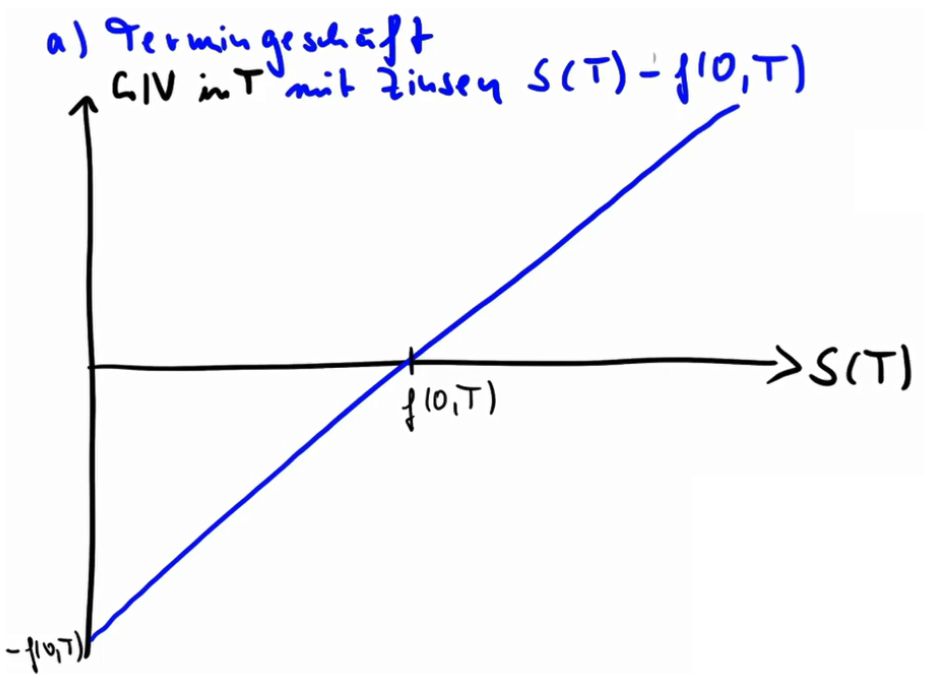 a) Termingeschäft
G/V in T mit Zinsen S(T) - f(0,T)
S(T)
f(0,T)
-f(0,T)